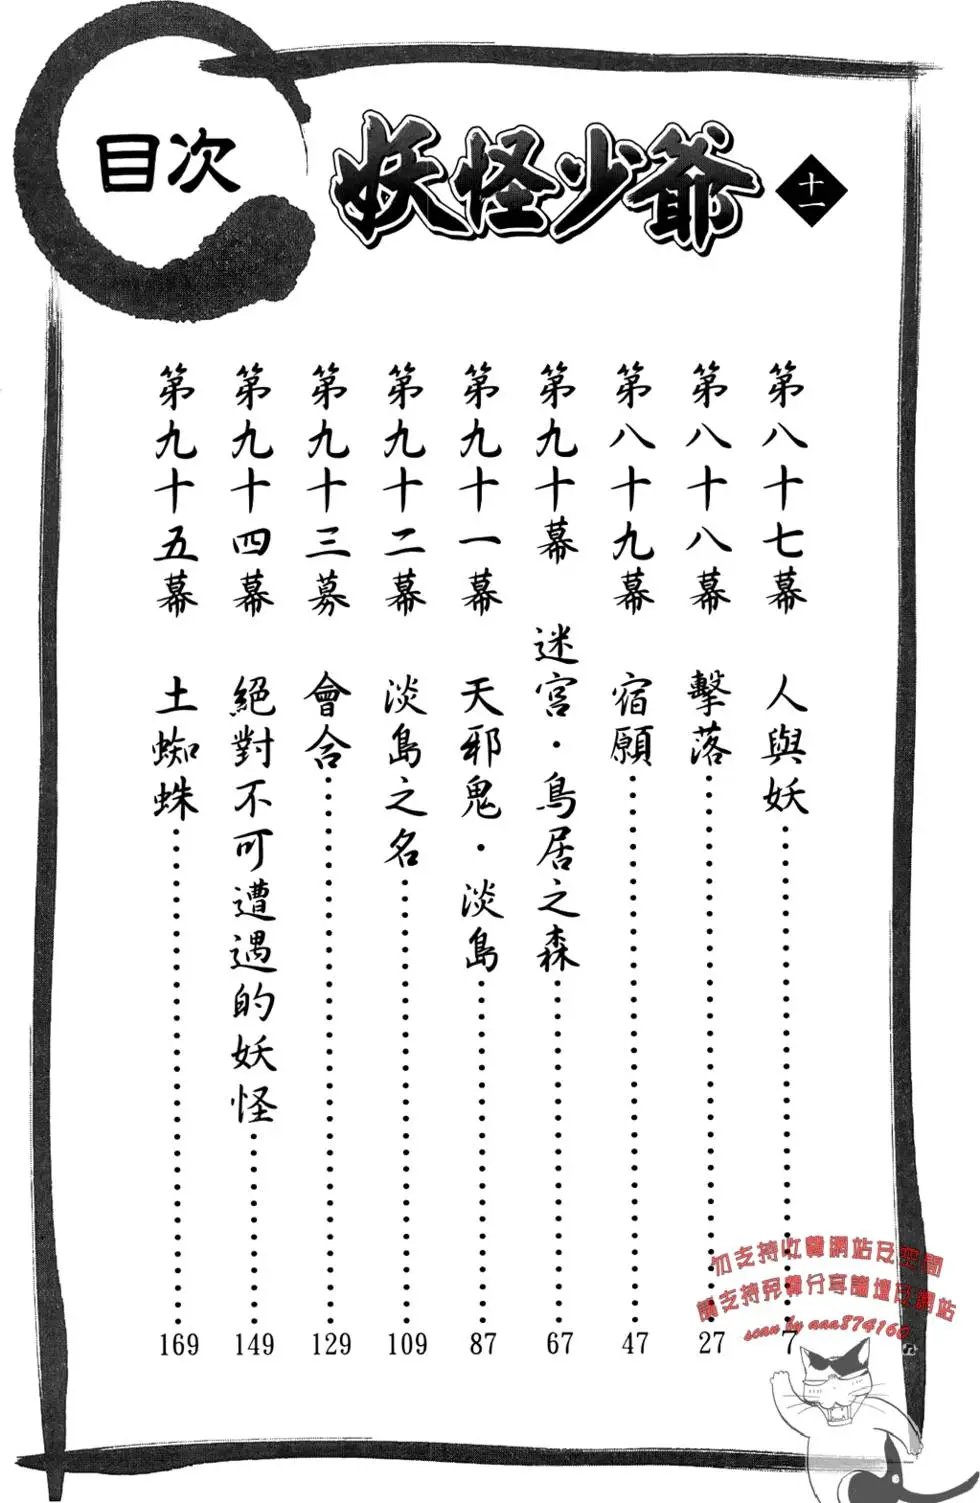 目次
妖怪少爺
十一
第八十七幕 人與妖 7
第八十八幕 擊落 27
第八十九幕 宿願 47
第九十幕 迷宮・鳥居之森 67
第九十一幕 天邪鬼・淡島 87
第九十二幕 淡島之名 109
第九十三募 會合 129
第九十四幕 絕對不可遭遇的妖怪 149
第九十五幕 土蜘蛛 169
勿支持收費網站及空間
請支持免費分享論壇及網站
scan by aaa874160